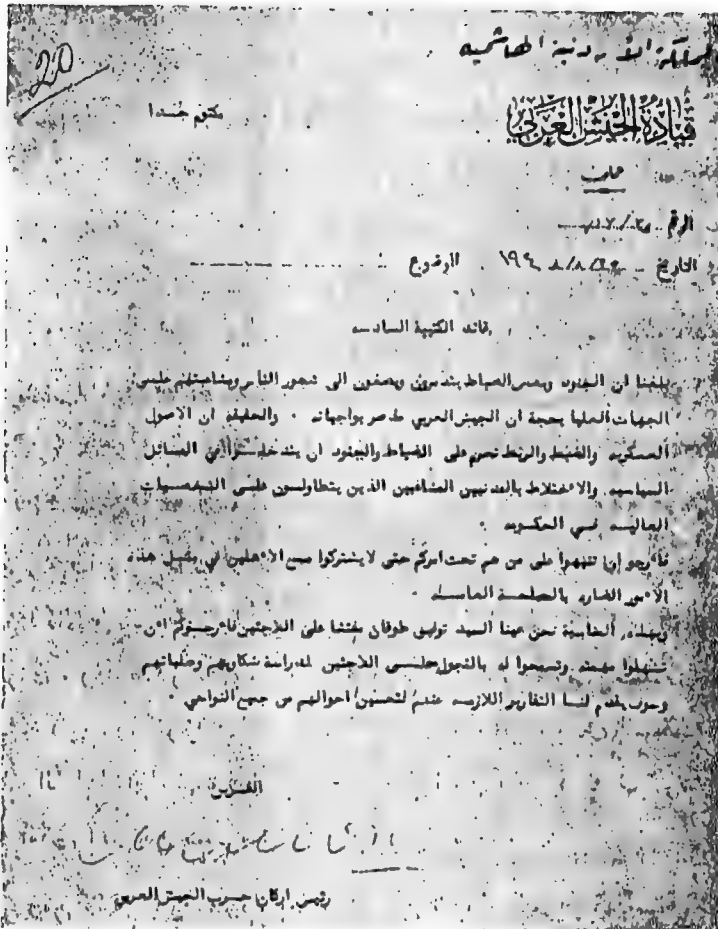 20
المملكة الأردنية الهاشمية
مكتوم جدا
قيادة الجيش العربي
عمان
الرقم
التاريخ ١٩٤٨/٨/ الموضوع
قائد الكتيبة السادسة
بلغنا ان الجنود وبعض الضباط يتذمرون ويصغون الى تذمر الناس على
الجهات العليا بحجة ان الجيش العربي قصر بواجباته . والحقيقة ان الاصول
العسكرية والضبط والربط تحرم على الضباط والجنود ان يتدخلوا في المسائل
السياسيه والاختلاط بالمدنيين المشاغبين الذين يتطاولون على الشخصيات
العاليه في الحكومه .
فأرجو ان تنبهوا على من هم تحت امركم حتى لا يشتركوا مع الاهلين في مثل هذه
الامور الضاره بالمصلحة العامه .
وبهذه المناسبة نحن عينا السيد توفيق طوقان مفتشا على اللاجئين فارجوكم ان
تسهلوا مهمته وتسمحوا له بالتجول على اللاجئين لدراسة شكاويهم وطلباتهم
وسوف يقدم لنا التقارير اللازمه عنهم لتحسين احوالهم من جميع النواحي .
رئيس اركان حرب الجيش العربي